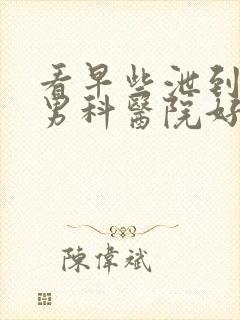 看早些泄到
男科醫院好
陳偉斌